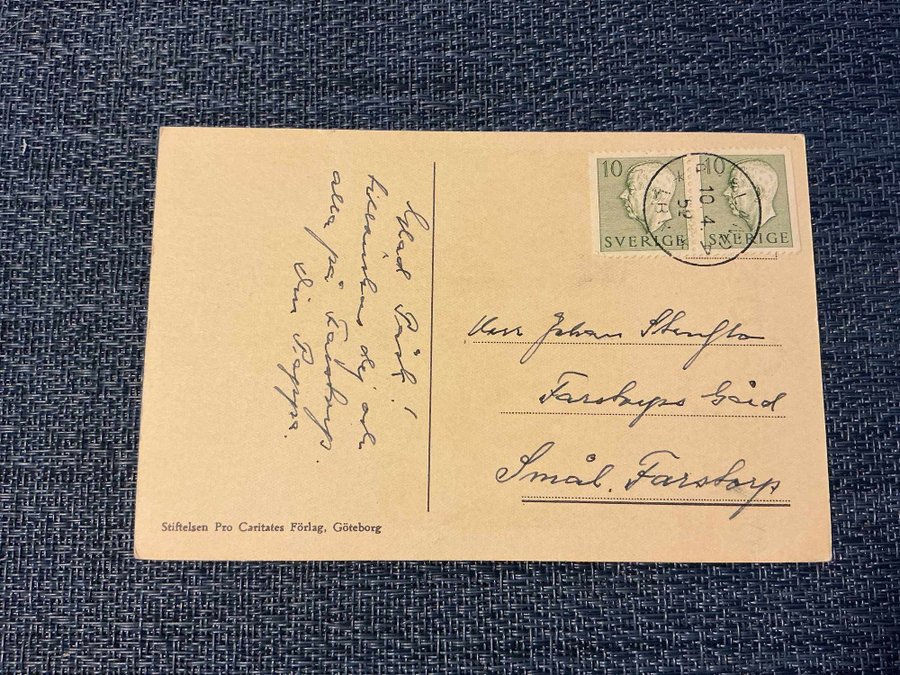 Glad Påsk!
tillönskas dig och
alla på Farstorp.
Din Pappa.
10
10
SVERIGE
SVERIGE
10.4
59
Herr Johan
Farstorps Gård
Smål. Farstorp
Stiftelsen Pro Caritates Förlag, Göteborg